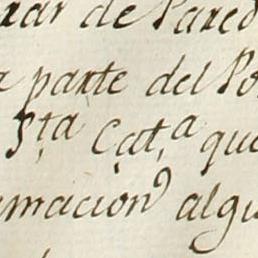 rar de Pared
a parte del Po
S.ta Cat.a que
rmacion algu